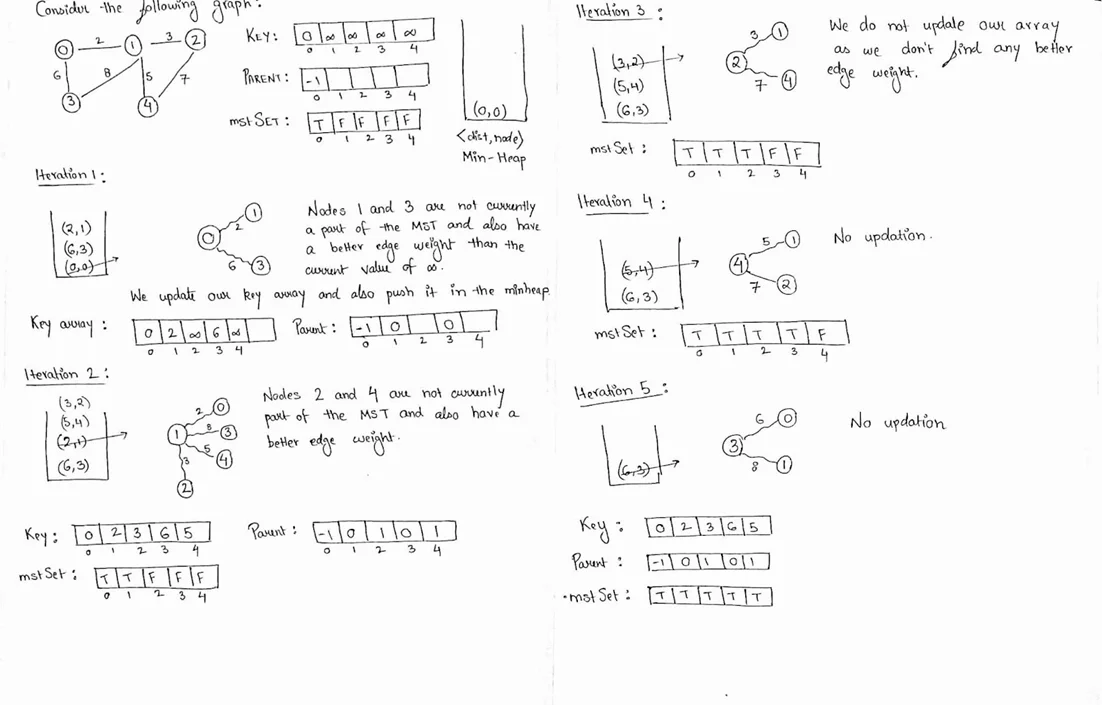 Consider the following graph:
0 2 1 3 2
6 8 5 7
3 4
KEY: 0 ∞ ∞ ∞ ∞
0 1 2 3 4
PARENT: -1
0 1 2 3 4
mstSET: T F F F F
0 1 2 3 4
(0,0)
<dist, node>
Min-Heap
Iteration 1:
(2,1)
(6,3)
(0,0)
0 2 1
6 3
Nodes 1 and 3 are not currently
a part of the MST and also have
a better edge weight than the
current value of ∞.
We update our key array and also push it in the minheap
Key array: 0 2 ∞ 6 ∞
0 1 2 3 4
Parent: -1 0 0
0 1 2 3 4
Iteration 2:
(3,2)
(5,4)
(2,1)
(6,3)
1 2 0
8 3
5 4
3
2
Nodes 2 and 4 are not currently
part of the MST and also have a
better edge weight.
Key: 0 2 3 6 5
0 1 2 3 4
Parent: -1 0 1 0 1
0 1 2 3 4
mstSet: T T F F F
0 1 2 3 4
Iteration 3:
(3,2)
(5,4)
(6,3)
2 3 1
7 4
We do not update our array
as we don't find any better
edge weight.
mstSet: T T T F F
0 1 2 3 4
Iteration 4:
(5,4)
(6,3)
4 5 1
7 2
No updation.
mstSet: T T T T F
0 1 2 3 4
Iteration 5:
(6,3)
3 6 0
8 1
No updation
Key: 0 2 3 6 5
Parent: -1 0 1 0 1
mstSet: T T T T T